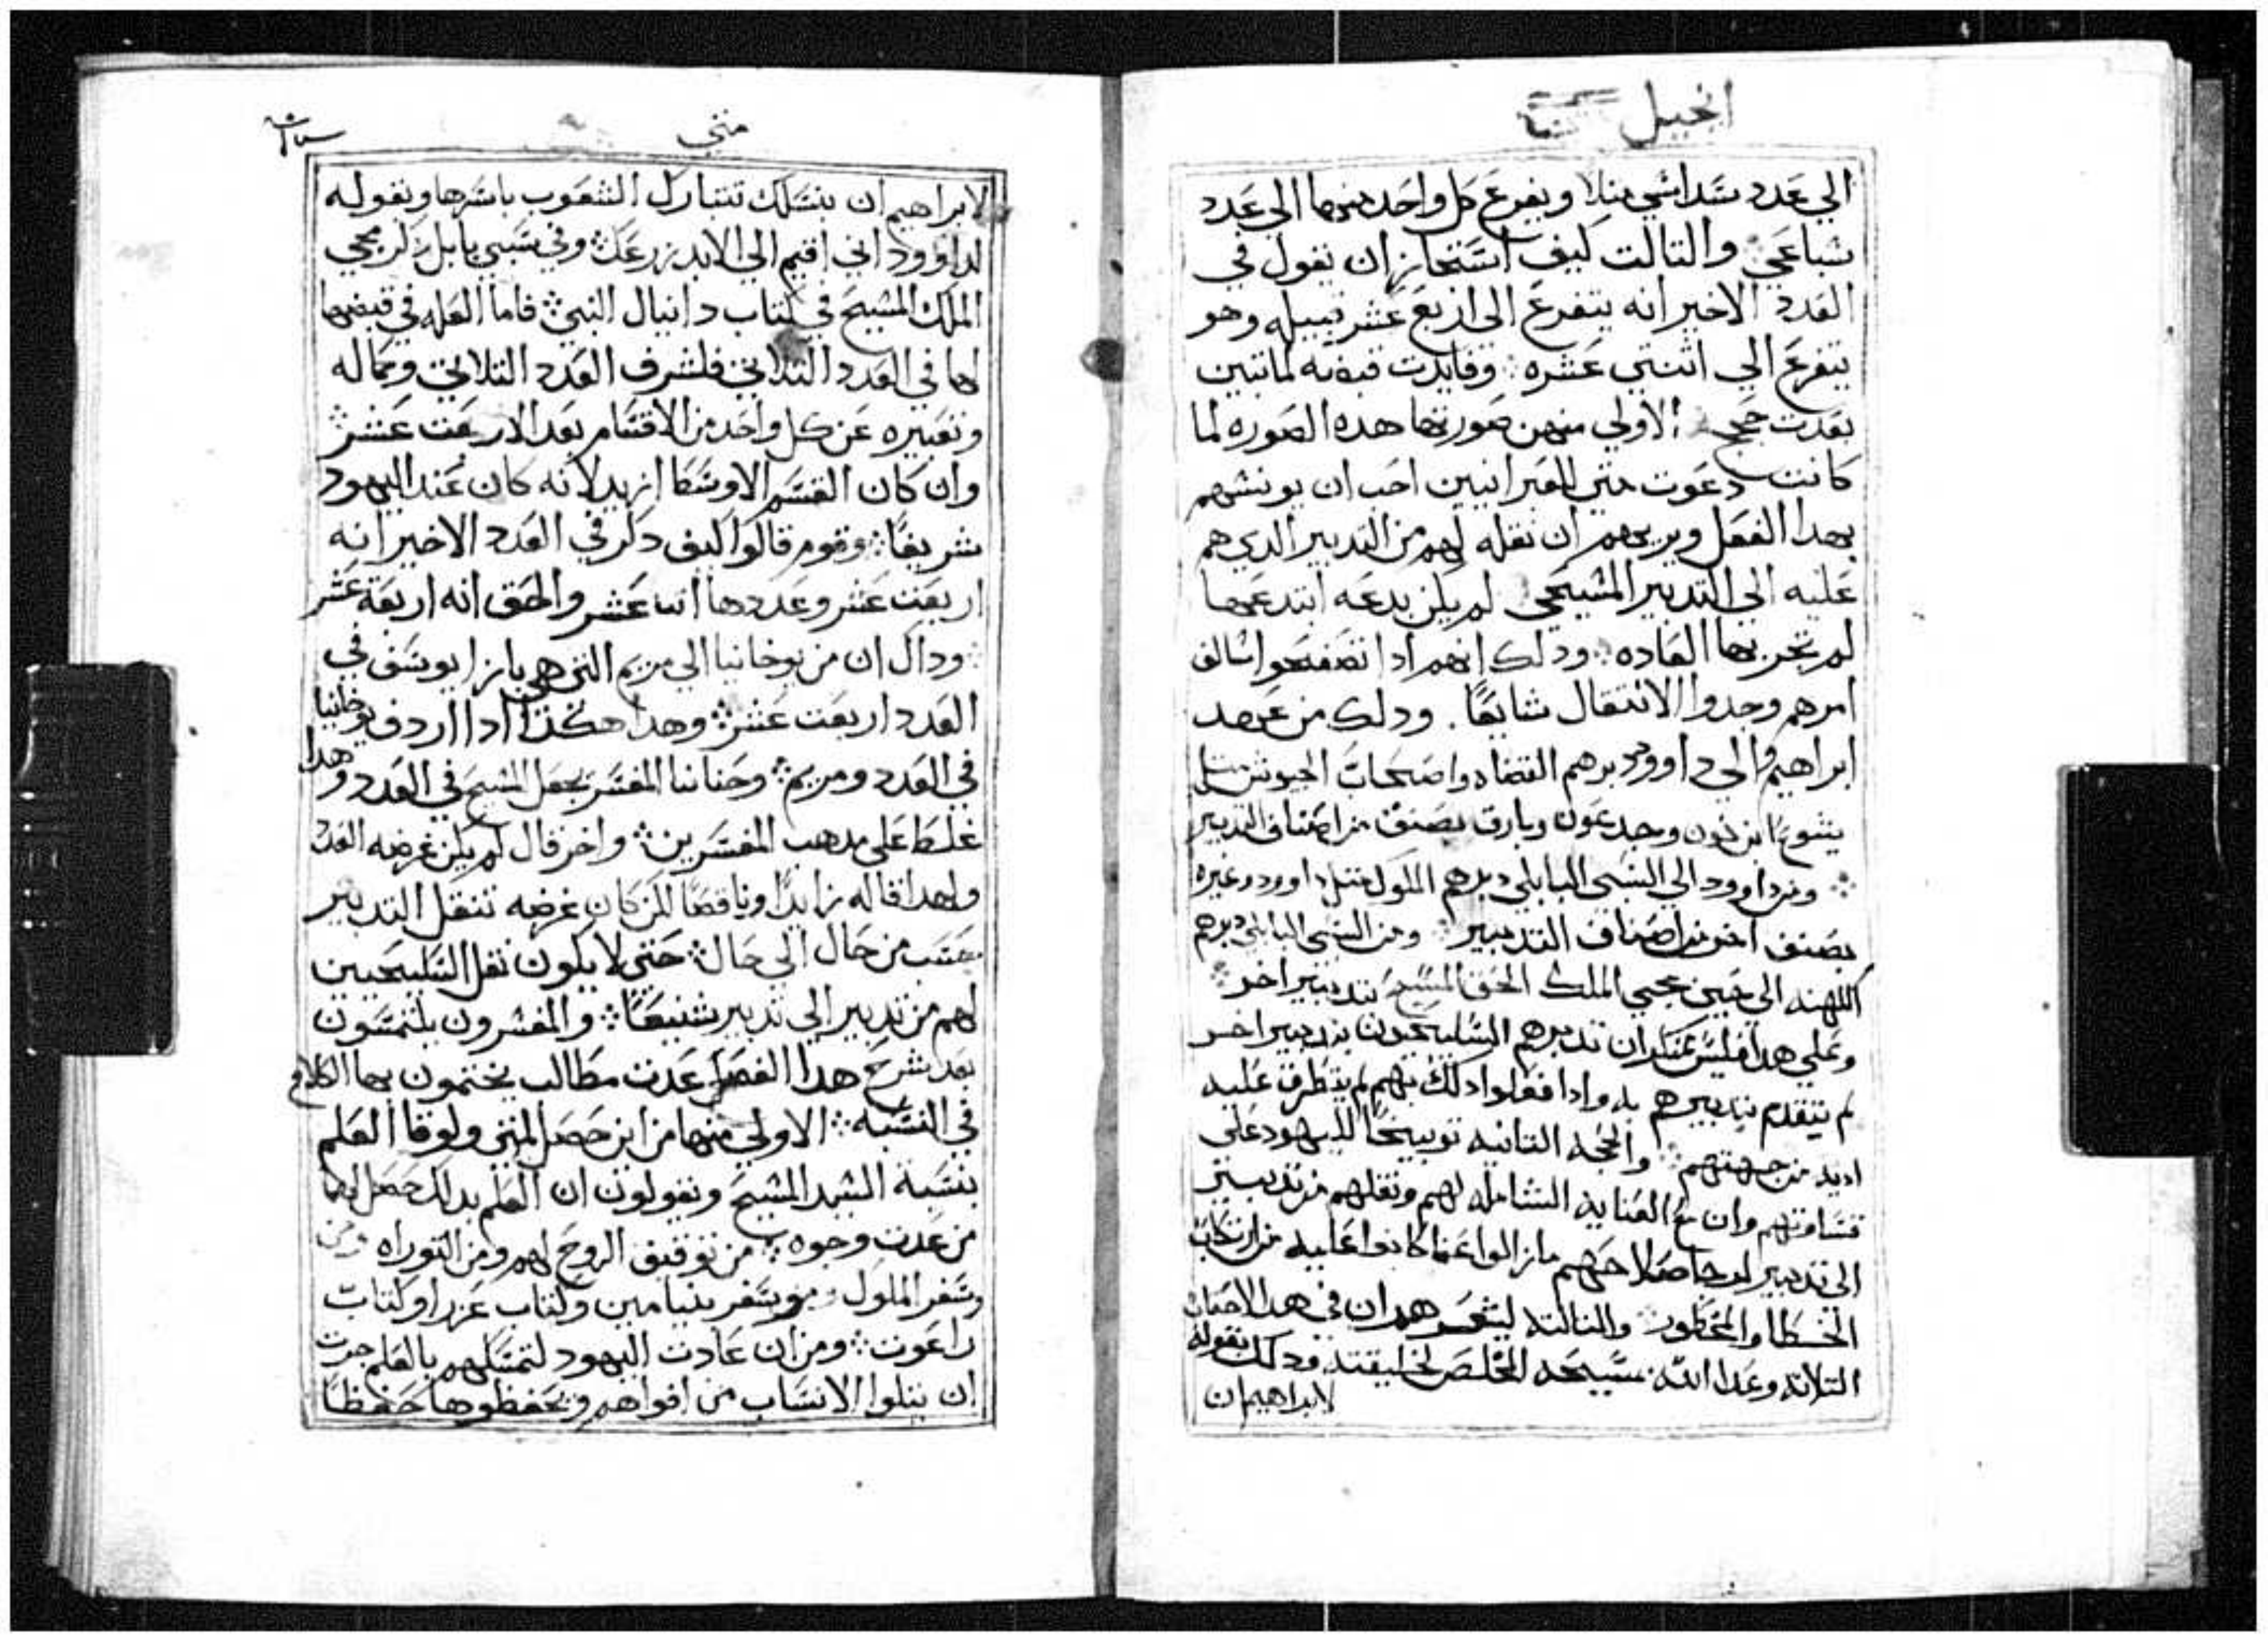 انجيل
الي عدد سداسي مثلا ويفرع كل واحد منهما الي عدد
سباعي والتالت كيف استجاز ان يقول في
العدد الاخير انه يتفرع الي اربع عشر قبيله وهو
يتفرع الي اتنتي عشره وفايدت قسمته لما تبين
بعدت حجج الاولي منهن صورتها هده الصوره لما
كانت دعوت متي للعبرانيين احب ان يونسهم
بهدا الفعل ويريهم ان نقله لهم من التدبير الدي هم
عليه الي التدبير المشيحي لم يكن بدعه ابتدعها
لم تجر بها العاده ودلك انهم ادا تصفحوا سالف
امرهم وجدوا الانتقال سابقا. ودلك من عهد
ابراهيم والي داوود دبرهم القضاه واصحاب الجيوش مثل
يشوع ابن نون وجدعون وبارق بصنف من اصناف التدبير
ومن داوود الي السبي البابلي دبرهم الملوك مثل داوود وغيره
بصنف اخر من اصناف التدبير ومن السبي البابلي دبرهم
الكهنه الي حين مجي الملك الحق المسيح بتدبير اخر
وعلي هدا فليس بمنكر ان تدبرهم السليحيون بتدبير اخر
لم يتقدم تدبيرهم به وادا فعلوا دلك بهم لم يتطرق عليه
اديه من جهتهم والحجه التانيه توبيخا لليهود علي
قساوتهم وان مع العنايه الشامله لهم ونقلهم من تدبير
الي تدبير لصلاحهم ما زالوا عما كانوا عليه من ارتكاب
الخطا والمحظور والتالته ليشعرهم ان في هده الاحقاب
التلاته وعد الله بمسيحه المخلص لخليقته ودلك بقوله
لابراهيم ان
متي
لابراهيم ان بنسلك تتبارك الشعوب باسرها وبقوله
لداوود اني اقيم الي الابد زرعك وفي سبي بابل دكر مجي
الملك المشيح في كتاب دانيال النبي فاما العله في قبضها
لها في العدد التلاتي فلشرف العدد التلاتي وكماله
وتعبيره عن كل واحد من الاقسام بعد الاربعت عشر
وان كان القسم الاوسط ازيد لانه كان عند اليهود
شريفا وقوم قالوا كيف دكر في العدد الاخير انه
اربعت عشر وعددها اتنا عشر والحق انه اربعة عشر
وداك ان من يوخانيا الي مريم التي هي بازا يوسف في
العدد اربعت عشر وهدا هكدا ادا اردف يوخانيا
في العدد ومريم وحنانيا المفسر يجعل المسيح في العدد وهدا
غلط علي مدهب المفسرين واخر قال لم يكن غرضه العدد
ولهدا قاله زايدا وناقصا لكن كان غرضه تنقل التدبير
حسب من حال الي حال حتي لا يكون نقل السليحيين
لهم من تدبير الي تدبير شنيعا والمفسرون يلتمسون
بعد شرح هدا الفصل عدت مطالب يختمون بها الكلام
في النسبه الاولي منها من اين حصل لمتي ولوقا العلم
بنسبة السيد المشيح ويقولون ان العلم بدلك حصل لهما
من عدت وجوه من توفيق الروح لهم ومن التوراه ومن
وسفر الملوك ومن سفر بنيامين وكتاب عزرا وكتاب
راعوت ومن ان عادت اليهود لتمسكهم بالعلم جرت
ان يتلوا الانساب من افواههم ويحفظوها حفظا